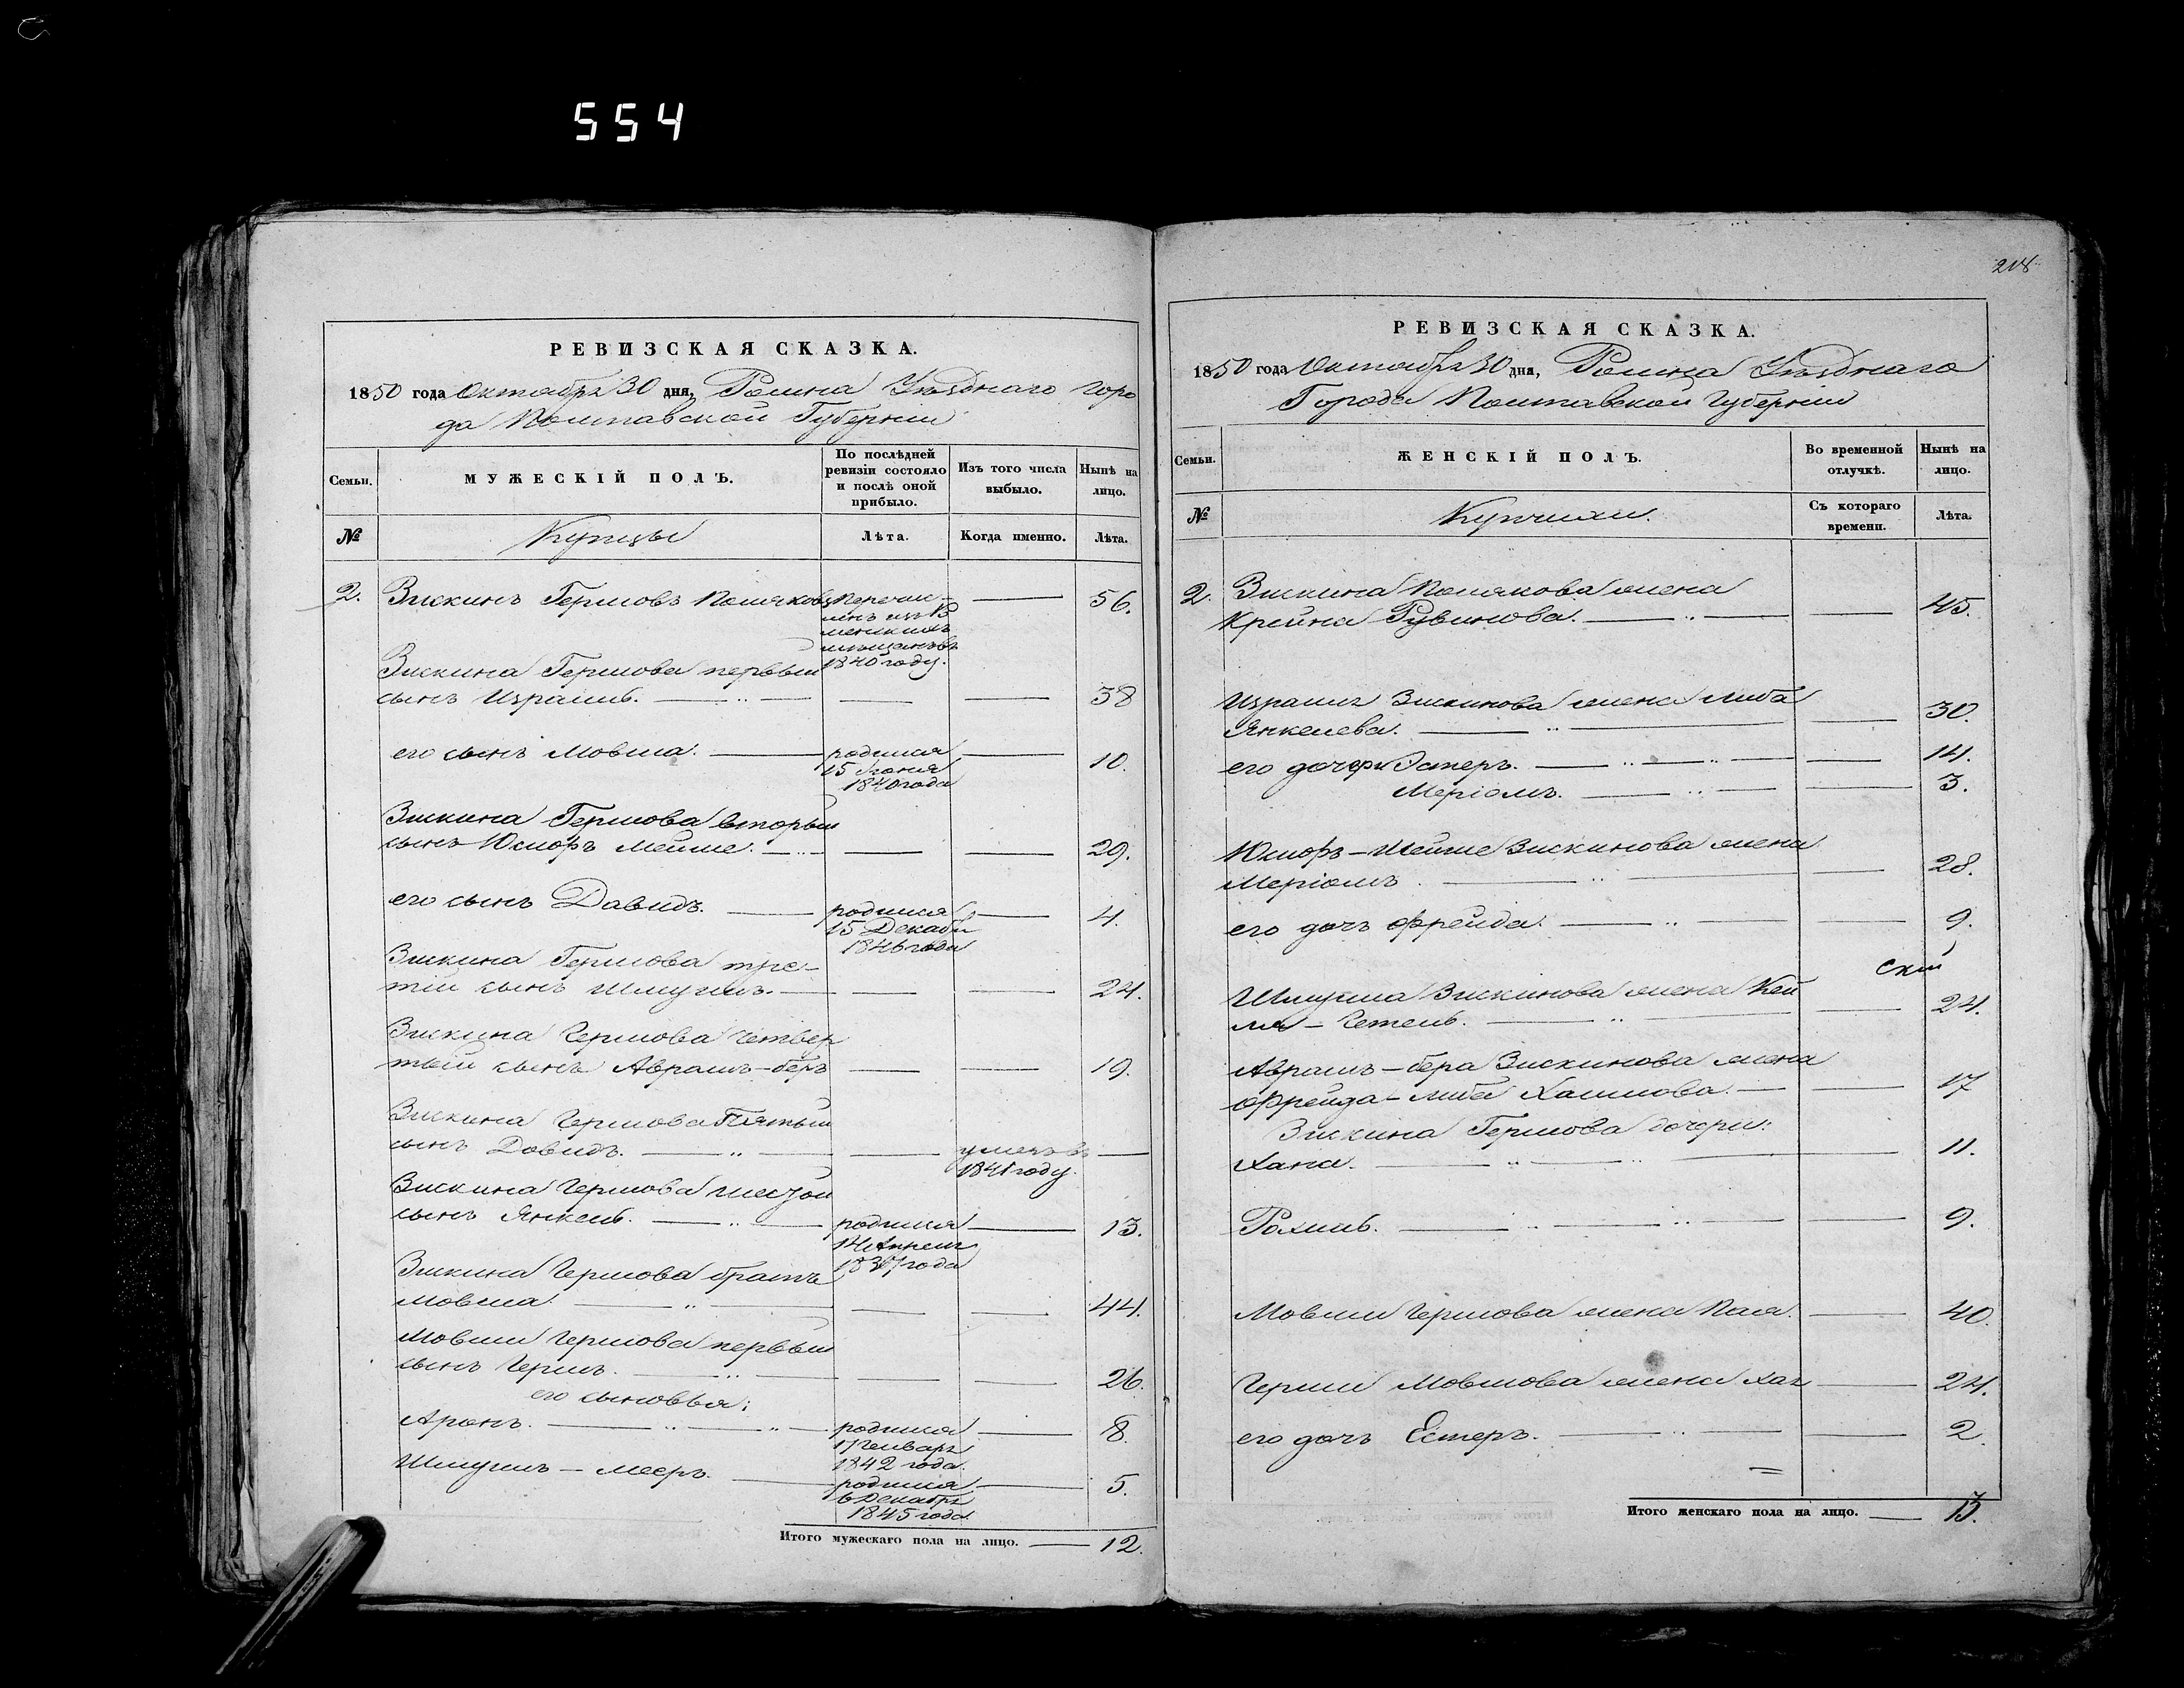 554
РЕВИЗСКАЯ СКАЗКА.
1850 года Октября 30 дня, Ромна Уѣзднаго горо
да Полтавской Губерніи
Семьи.
МУЖЕСКІЙ ПОЛЪ.
По послѣдней
ревизіи состояло
и послѣ оной
прибыло.
Изъ того числа
выбыло.
Нынѣ на
лицо.
№
Купцы
Лѣта.
Когда именно.
Лѣта.
2. Зискинъ Гершовъ Поляковъ перечис- 56.
ленъ изъ
мѣщанъ въ
1840 году.
Зискина Гершова первый
сынъ Израиль. 38
его сынъ Мовша. родился 10.
15 Іюня
1840 года
Зискина Гершова вторый
сынъ Юсифъ Мейше. 29.
его сынъ Давидъ. родился 4.
15 Декабр
1846 года
Зискина Гершова тре-
тій сынъ Шмуиль. 24.
Зискина Гершова четвер
тый сынъ Аврамъ-беръ 19.
Зискина Гершова Пятый
сынъ Довидъ. умеръ въ
1841 году.
Зискина Гершова шестой
сынъ Янкель. родился 13.
14 Апреля
1837 года
Зискина Гершова братъ
Мовша. 44.
Мовши Гершова первый
сынъ Гершъ. 26.
его сыновья:
Аронъ. родился 8.
17 Генваря
1842 года.
Шмуиль-мееръ. родился 5.
6 Декабря
1845 года
Итого мужескаго пола на лицо. 12.
218
РЕВИЗСКАЯ СКАЗКА.
1850 года Октября 30 дня, Ромна Уѣзднаго
Города Полтавской Губерніи
Семьи.
ЖЕНСКІЙ ПОЛЪ.
Во временной
отлучкѣ.
Нынѣ на
лицо.
№
Купчихи.
Съ котораго
времени.
Лѣта.
2. Зискина Полякова жена
Крейна Рувинова. 45.
Израиля Зискинова жена Либа
Янкелева. 30.
его дочери Эстеръ. 14.
Меріомъ. 3.
Юсифъ-Мейше Зискинова жена
Меріомъ. 28.
его дочь Фрейда. 9.
Шмуила Зискинова жена Кей
ля-Гетель. 24.
Аврамъ-бера Зискинова жена
Фрейда-Либа Хаимова. 17
Зискина Гершова дочери:
Хана. 11.
Рохиль. 9.
Мовши Гершова жена Пая. 40.
Герши Мовшова жена Хая 24.
его дочь Естеръ. 2.
Итого женскаго пола на лицо. 13.